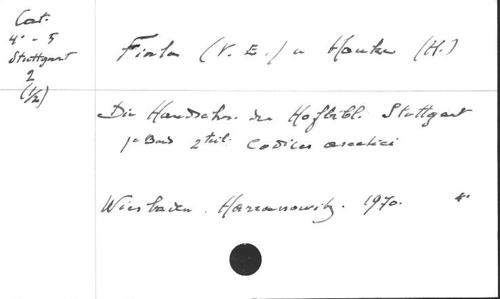 Cat.
4° - 5
Stuttgart
2
(1/2)
Fiala (V. E.) u Hauke (H.)
Die Handschr. der Hofbibl. Stuttgart
1° Band 2 teil. Codices ascetici
Wiesbaden. Harrassowitz. 1970. 4°